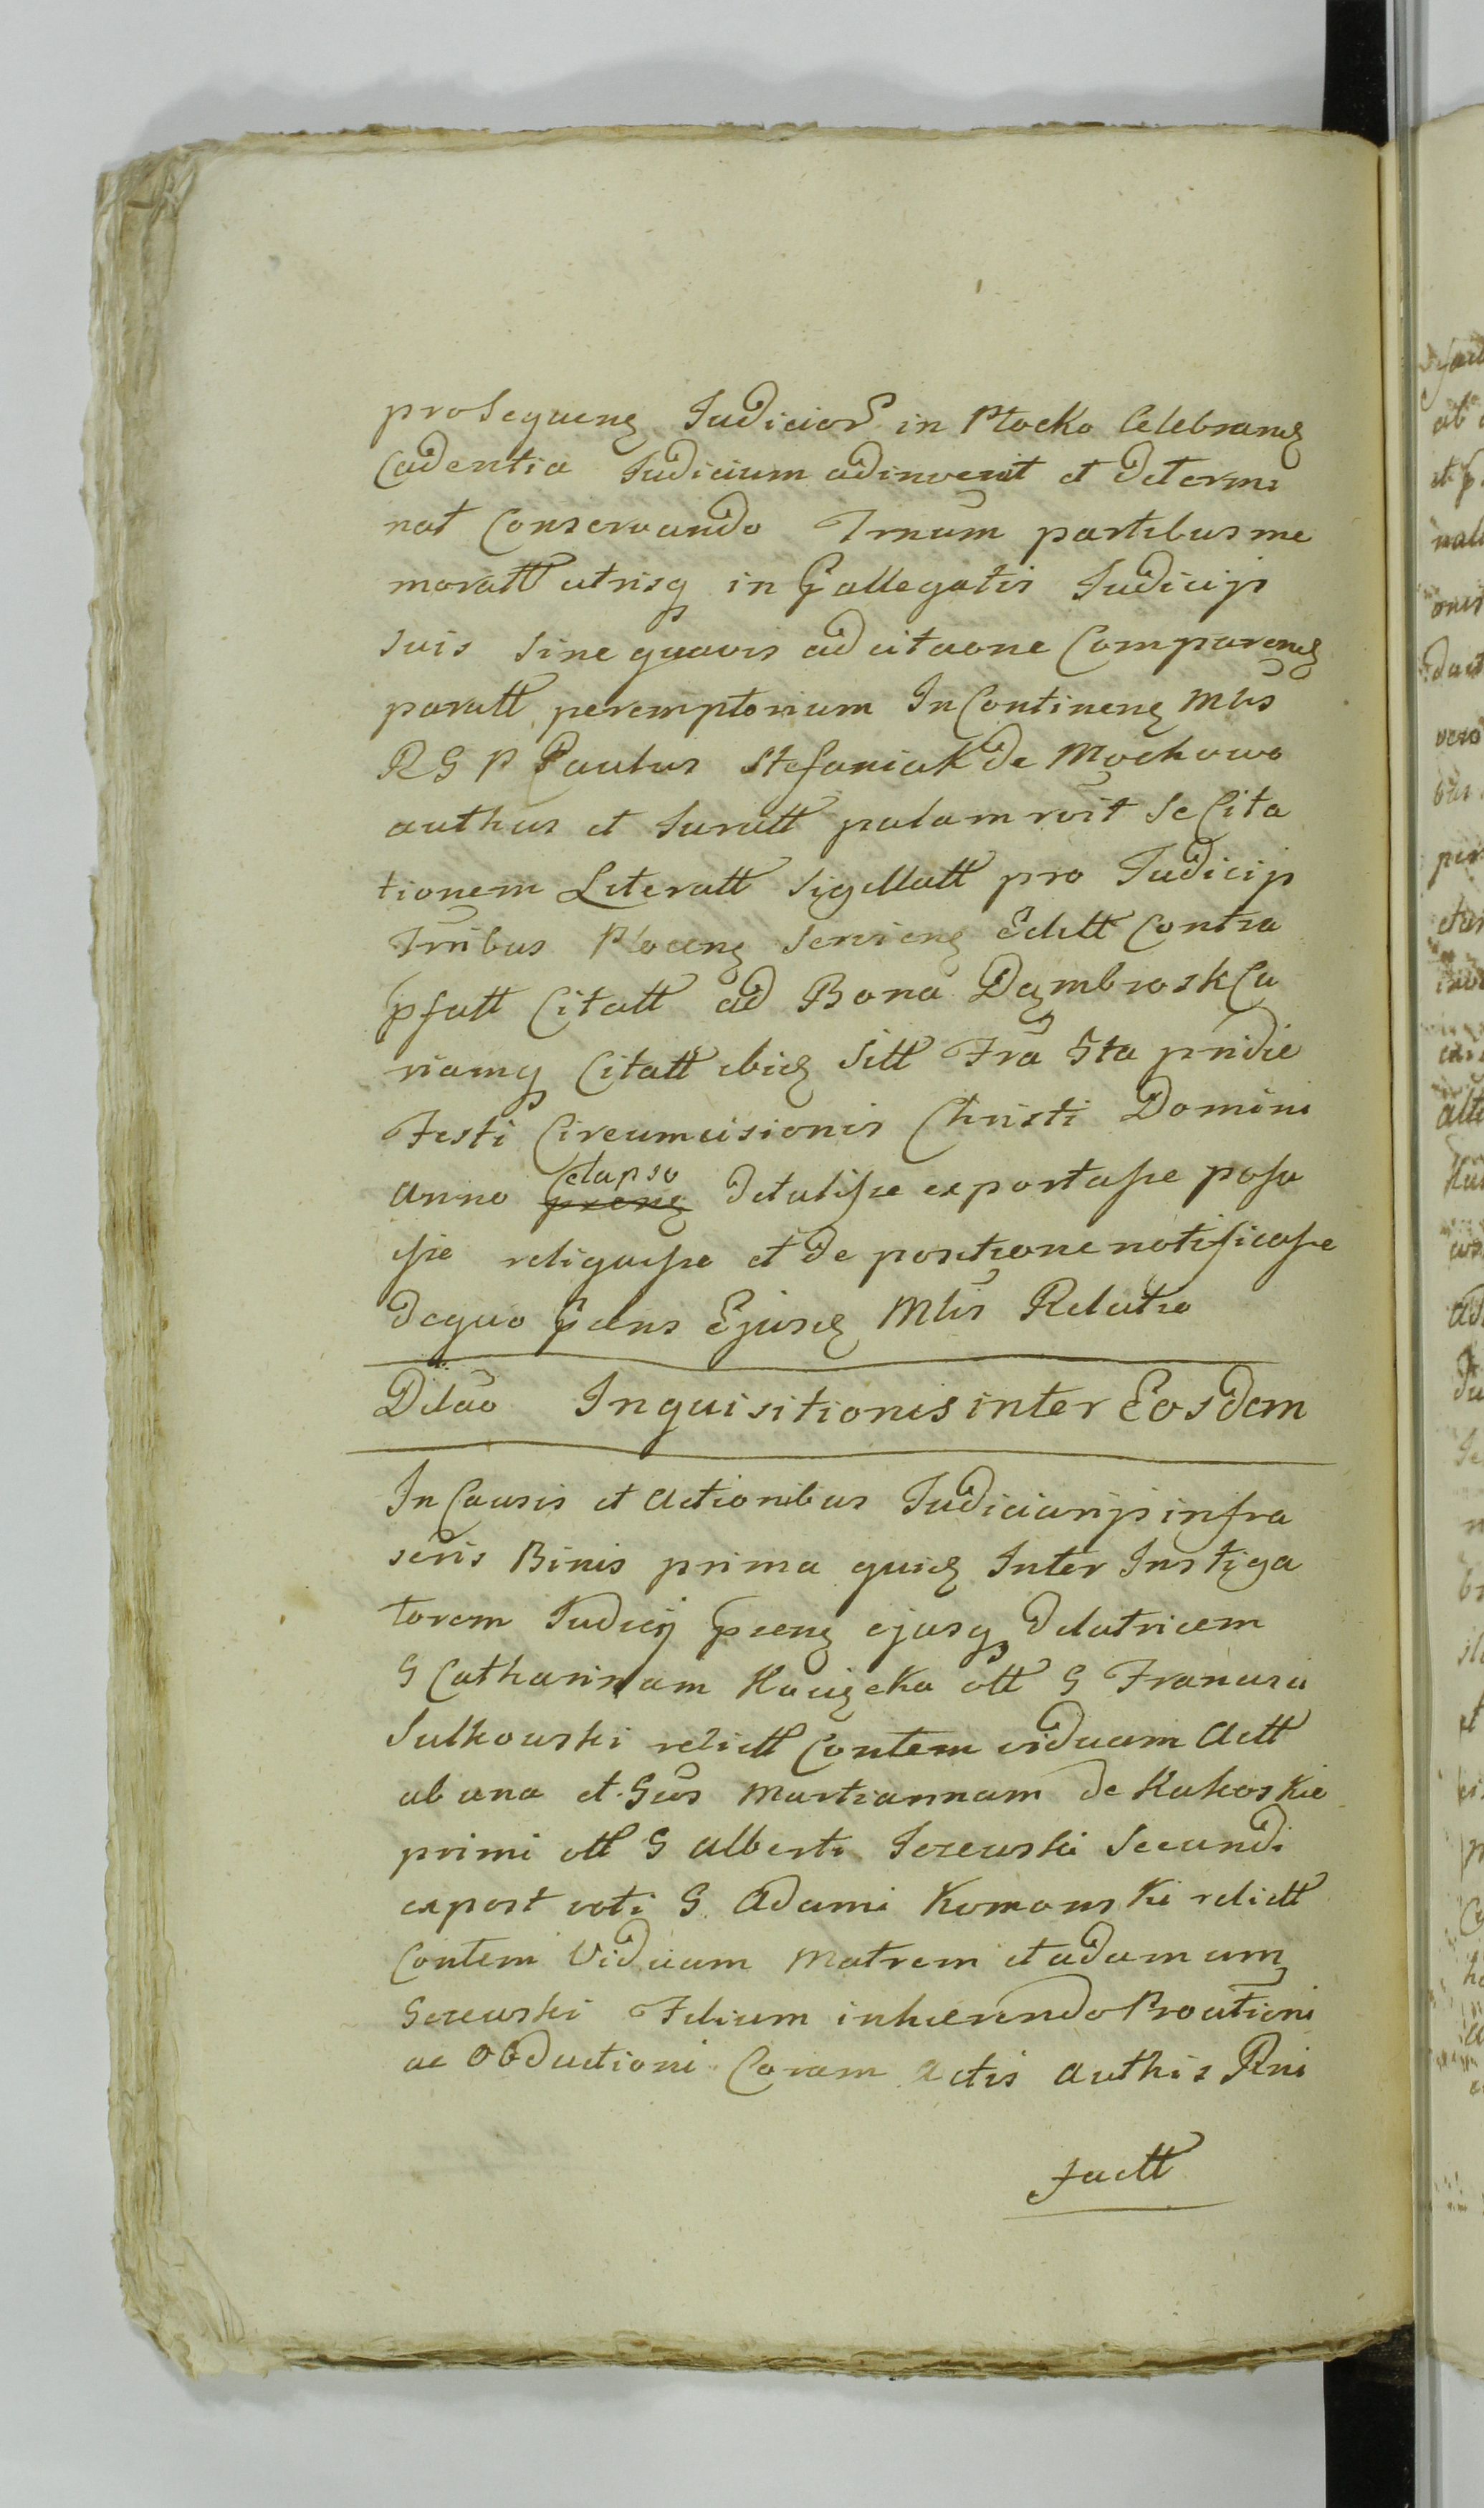 prosequenę Judicior in Płocko Celebranę
Cadentia Judicium adinvenit et determi
nat Conservando Trnum partibus me
moratt utrisq in pallegatis Judicijs
suis sine quavis adcitaone Comparenę
paratt peremptorium In Continenę Mlis
R G P Paulus Stefaniak de Mochowo
authus et Juratt palam rvit se Cita
tionem Literatt Sigillatt pro Judicijs
Trribus Plocenę servienę Editt Contra
pfatt Citatt ad Bona Dąmbrosk Cu
riamq Citatt ibidę Sitt Fra 5ta pridie
Festi Circumcisionis Christi Domini
anno elapso prenę detulisse exportasse posu
isse reliquisse et de positione notificasse
dequo prens Ejusdę Mlis Relatio
Dilao Inquisitionis inter Eosdem
In Causis et Actionibus Judiciarijs infra
scris Binis prima quidę Inter Instiga
torem Judicij prenę ejusq delatricem
G Catharinam Kacięcka ott G Francisci
Sulkowski relictt Contem viduam Actt
ab una et Gus Martiannam de Kukoskie
primi ott G Alberti Jezewski Secundi
expost voti G. Adami Komonski relictt
Contem Viduam Matrem et adamum
Gezewski Filium inhaerendo Proutioni
ac Obductioni Coram Actis authis Rni
factt